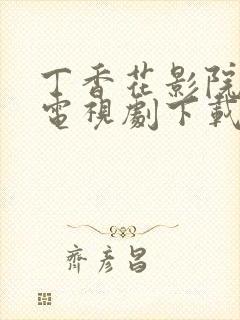 丁香花影院
電視劇下載
齊彥昌